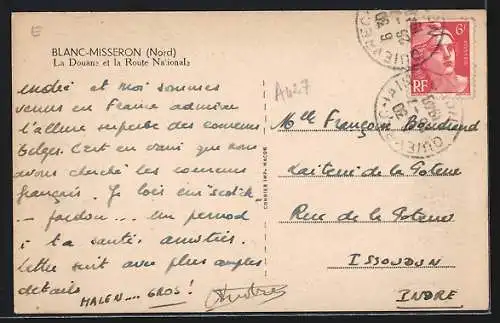 E
BLANC-MISSERON (Nord)
La Douane et la Route Nationale
A427
André et moi sommes
venus en France admirer
l'allure superbe des coureurs
belges. C'est en vain que nous
avons cherché les coureurs
français. Je bois un "scotch"
- pardon... un pernod
à ta santé. amitiés.
lettre suit avec plus amples
détails
MALEN... GROS!
André
COMBIER IMP. MACON
6F
RF
Mlle Françoise
Laiterie de la Poterie
Rue de la Poterie
ISSOUDUN
INDRE